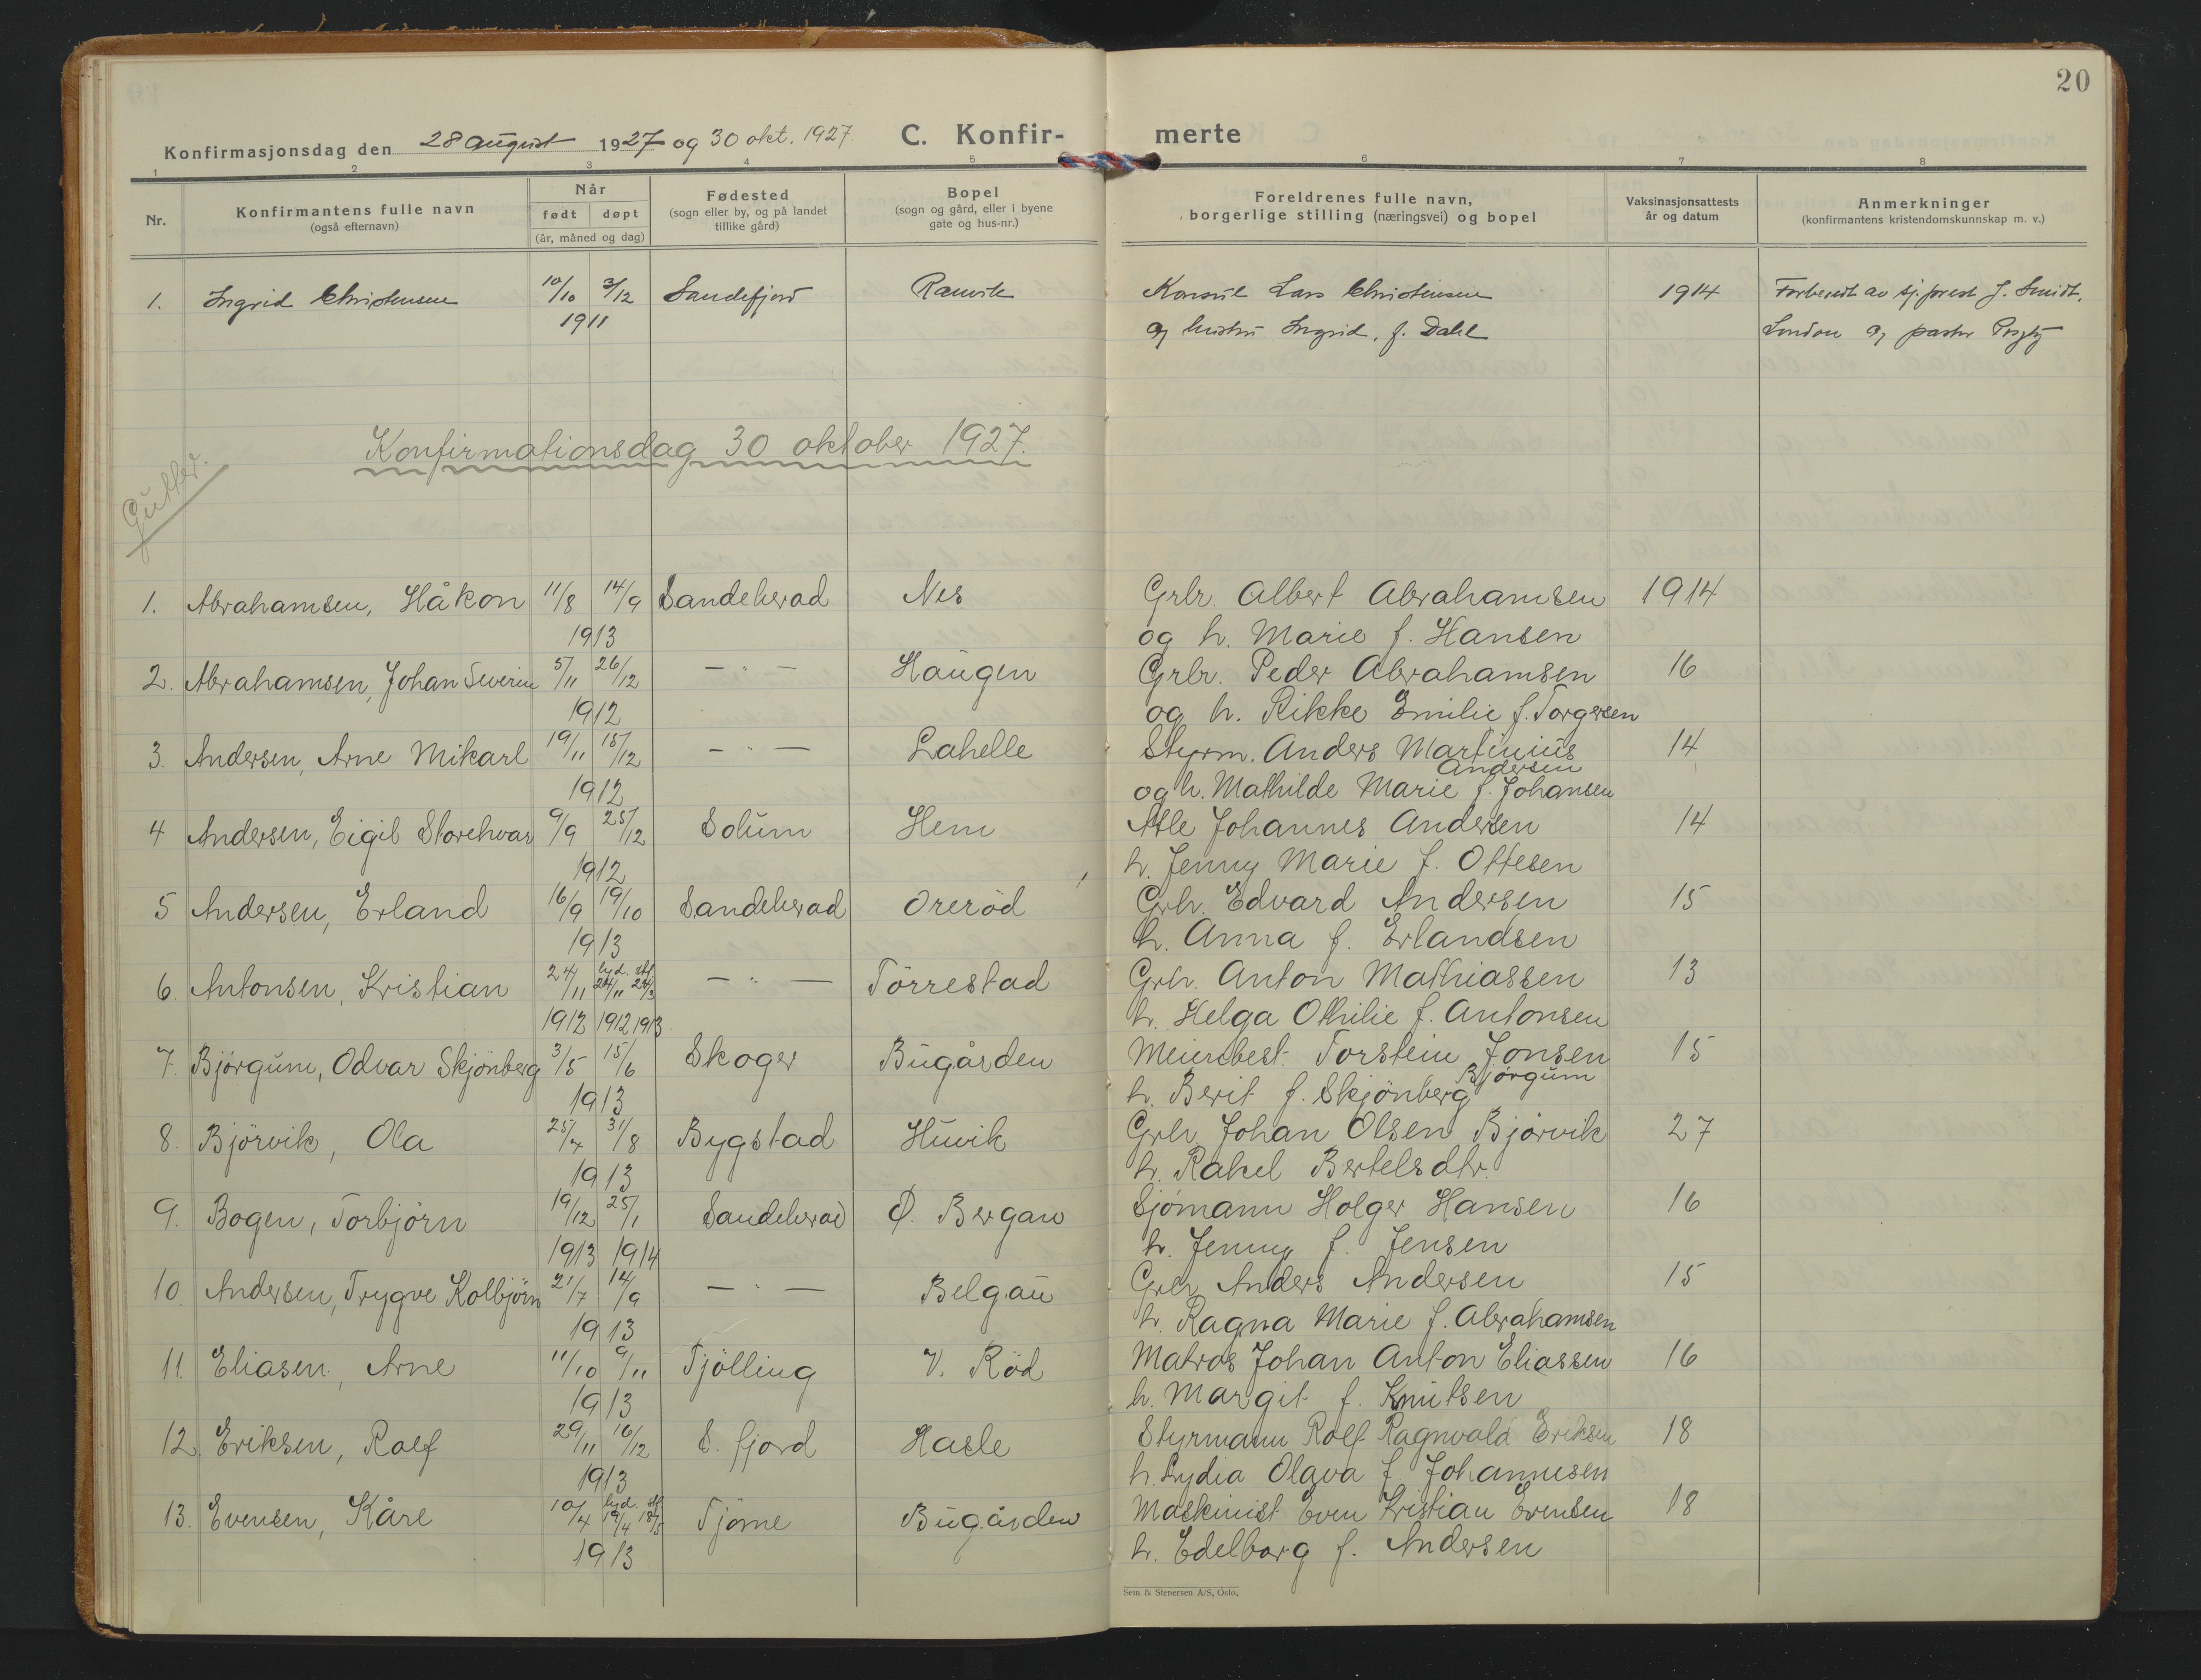 20
Konfirmasjonsdag den 28 august 1927 og 30 okt. 1927. C. Konfir- merte
1 2 3 4 5 6 7 8
Nr. Konfirmantens fulle navn (også efternavn) Når født døpt (år, måned og dag) Fødested (sogn eller by, og på landet tillike gård) Bopel (sogn og gård, eller i byene gate og hus-nr.) Foreldrenes fulle navn, borgerlige stilling (næringsvei) og bopel Vaksinasjonsattests år og datum Anmerkninger (konfirmantens kristendomskunnskap m. v.)
1. Ingrid Christensen 10/10 3/12 Sandefjord Ranvik Konsul Lars Christensen 1914 Forberedt av sj.prest J. Smidt,
1911 og hustru Ingrid, f. Dahl London og pastor
Konfirmationsdag 30 oktober 1927.
Gutter.
1. Abrahamsen, Håkon 11/8 14/9 Sandeherad Nes Grbr. Albert Abrahamsen 1914
1913 og h. Marie f. Hansen
2. Abrahamsen, Johan Severin 5/11 26/12 — " — Haugen Grbr. Peder Abrahamsen 16
1912 og h. Rikke Emilie f. Torgersen
3. Andersen, Arne Mikarl 19/11 15/12 — " — Lahelle Styrm. Anders Martinius 14
Andersen
1912 og h. Mathilde Marie f. Johansen
4 Andersen, Eigil Storehvar 9/9 25/12 Solum Hem Johannes Andersen 14
1912 h. Jenny Marie f. Ottesen
5 Andersen, Erland 16/9 19/10 Sandeherad Orerød Grbr. Edvard Andersen 15
1913 h. Anna f. Erlandsen
6. Antonsen, Kristian 24/11 hjd. 24/11 stf 24/3 — " — Tørrestad Grbr. Anton Mathiassen 13
1912 1912 1913 h. Helga Othilie f. Antonsen
7. Bjørgum, Odvar Skjønberg 3/5 15/6 Skoger Bugården Meieribest. Torstein Jonsen 15
Bjørgum
1913 h. Berit f. Skjønberg
8. Bjørvik, Ola 25/4 31/8 Bygstad Huvik Grbr Johan Olsen Bjørvik 27
1913 h. Rakel Bertelsdtr.
9. Bogen, Torbjørn 19/12 25/1 Sandeherad Ø. Bergan Sjømann Holger Hansen 16
1913 1914 h. Jenny f. Jensen
10. Andersen, Trygve Kolbjørn 21/7 14/9 — " — Belgau Grbr Anders Andersen 15
1913 h. Ragna Marie f. Abrahamsen
11. Eliasen, Arne 11/10 9/11 Tjølling V. Rød Matros Johan Anton Eliassen 16
1913 h. Margit f. Knutsen
12. Eriksen, Rolf 29/11 16/12 S. fjord Hasle Styrmann Rolf Ragnvald Eriksen 18
1913 h. Lydia Olava f. Johannesen
13. Evensen, Kåre 10/4 hjd. 19/4 stf 18/5 Tjøme Bugården Maskinist Even Kristian Evensen 18
1913 h. Edelborg f. Andersen
Sem & Stenersen A/S, Oslo.